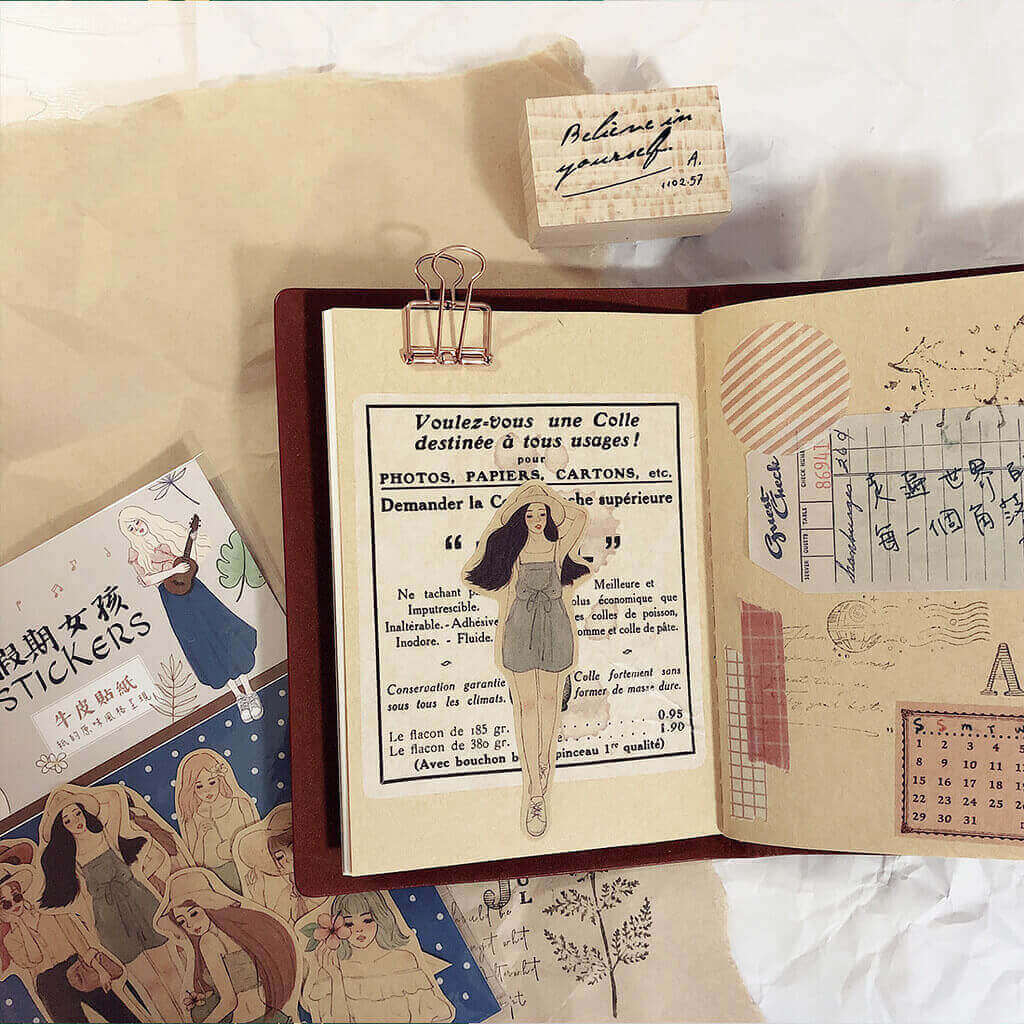 Believe in
yourself.
A.
1102.57
Voulez-vous une Colle
destinée à tous usages!
pour
PHOTOS, PAPIERS, CARTONS, etc.
Demander la supérieure
“ ”
Ne tachant
Imputrescible.
Inaltérable.-Adhésive
Inodore. - Fluide.
Meilleure et
plus économique que
es colles de poisson,
omme et colle de pâte.
Conservation garantie
sous tous les climats.
Colle fortement sans
former de masse dure.
Le flacon de 185 gr. 0.95
Le flacon de 380 gr. 1.90
(Avec bouchon pinceau 1re qualité)
Guest
Check
SERVER GUESTS TABLE CHECK
86941
hamburger 369
走遍世界
每一個角落
A
S S m T W
1 2 3 4 5
8 9 10 11
15 16 17 18
22 23 24 25
29 30 31
假期女孩
STICKERS
牛皮貼紙
紙的原味風格呈現
JUL